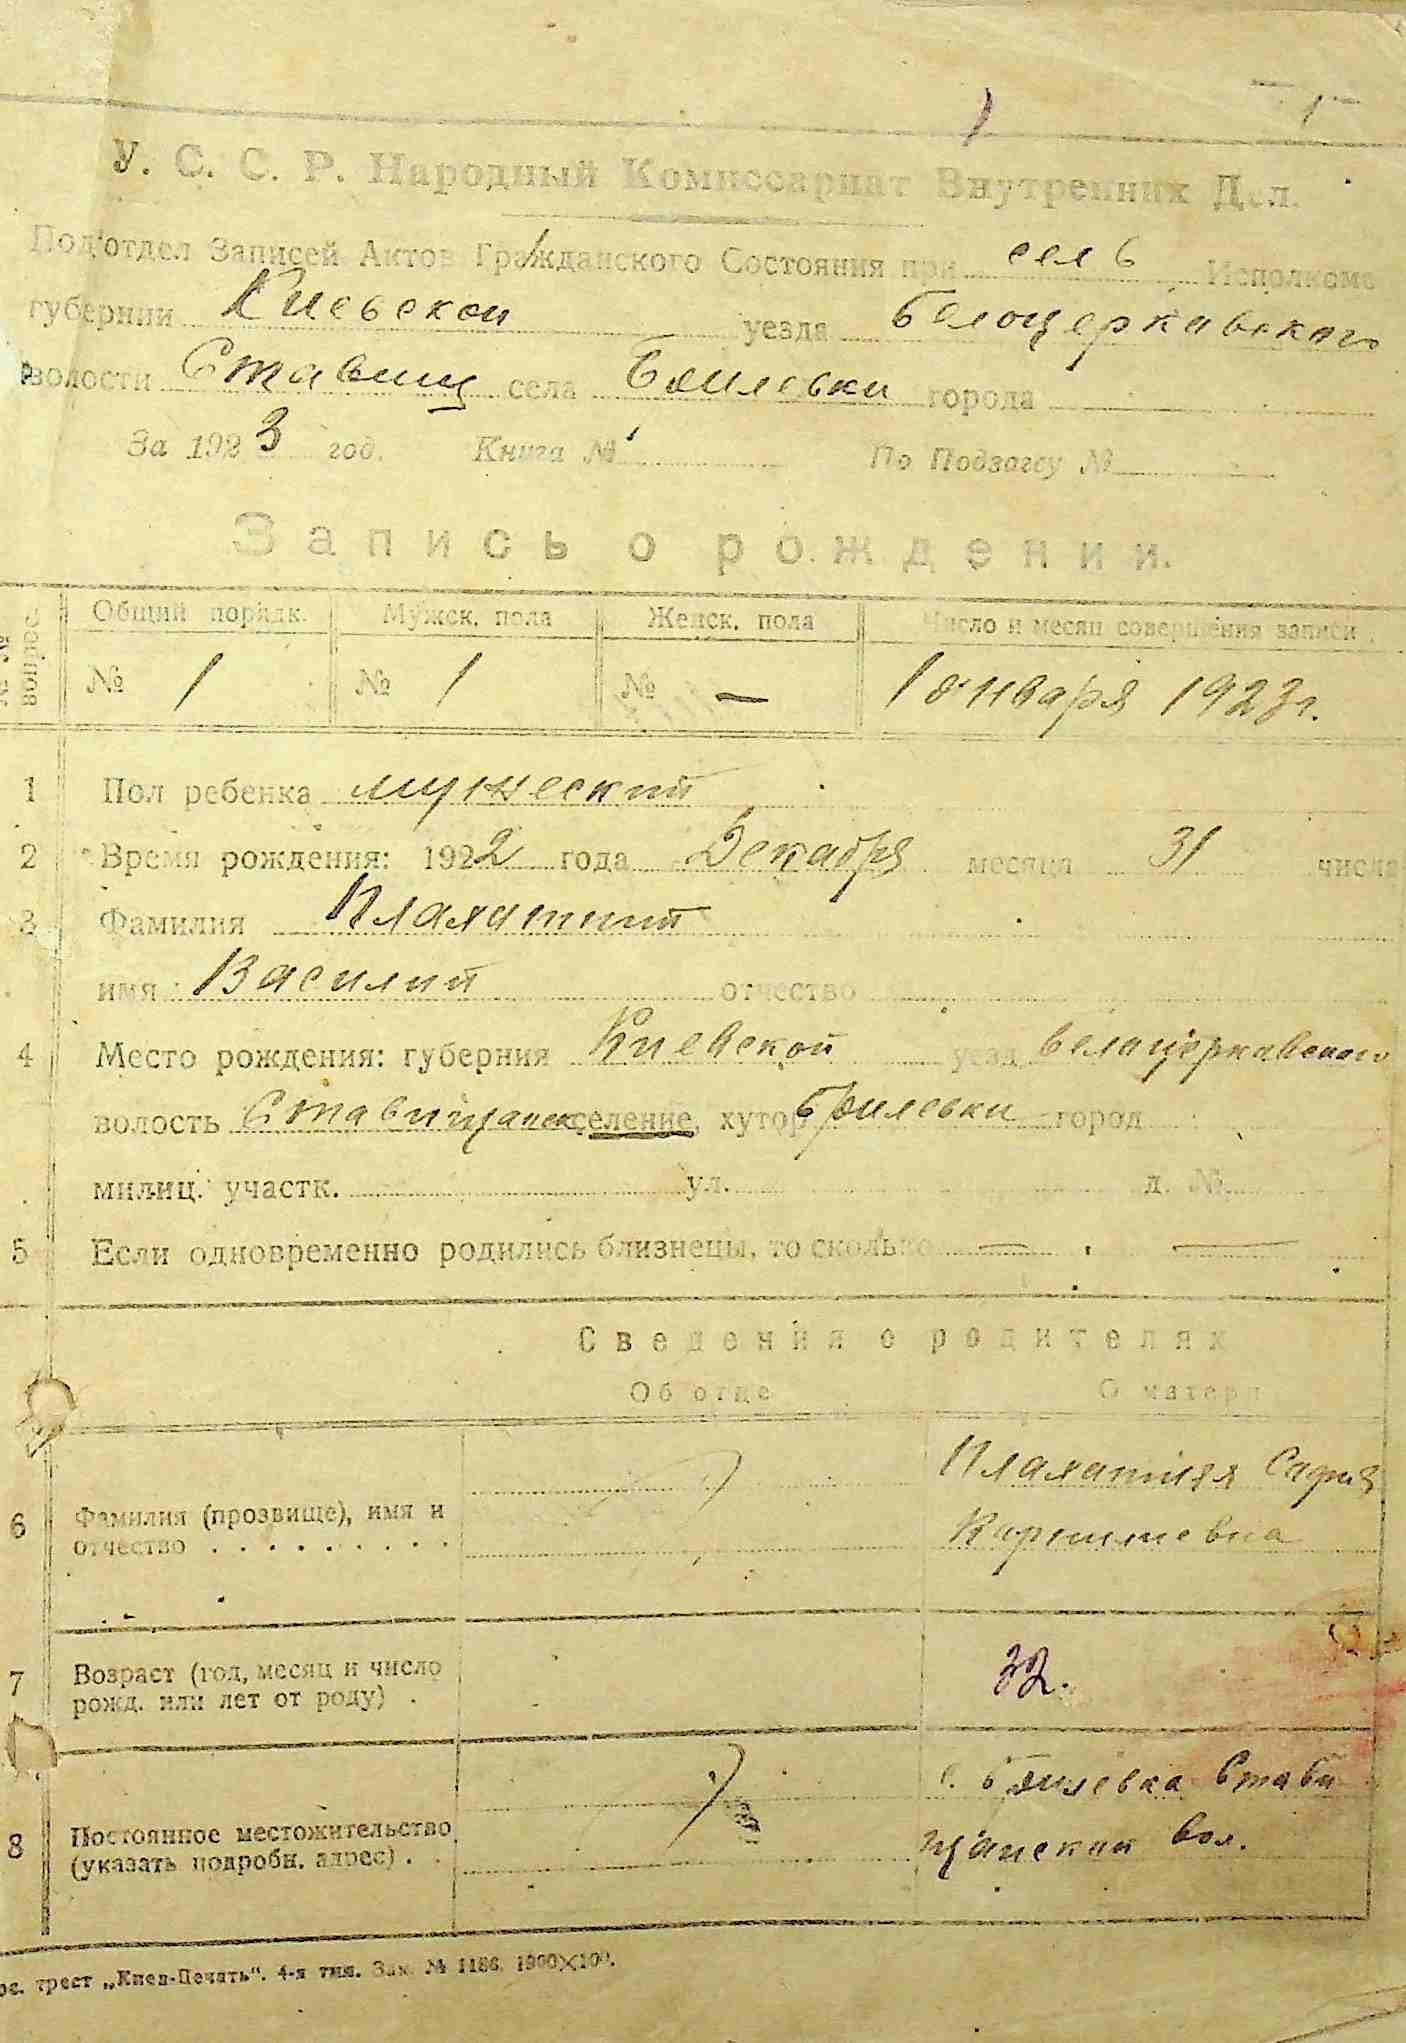 У. С. С. Р. Народный Комиссариат Внутренних Дел.
Под'отдел Записей Актов Гражданского Состояния при сел ь Исполкоме
губернии Киевской уезда Белоцерковского
волости Ставищ села Брилевки города
За 1923 год. Книга № По Подзагсу №
Запись о рождении.
№ № вопросов Общий порядк. Мужск. пола Женск. пола Число и месяц совершения записи
№ 1 № 1 № — 1 января 1923 г.
1 Пол ребенка мужеский
2 Время рождения: 1922 года Декабря месяца 31 числа
3 Фамилия Плахатний
имя Василий отчество
4 Место рождения: губерния Киевской уезд Белоцерковского
волость Ставищанск селение, хутор Брилевки город
милиц. участк. ул. д. №
5 Если одновременно родились близнецы, то сколько — —
Сведения о родителях
Об отце О матери
Плахатняя
6 Фамилия (прозвище), имя и
отчество
7 Возраст (год, месяц и число 32.
рожд. или лет от роду)
с. Брилевка Стави
8 Постоянное местожительство щанской вол.
(указать подробн. адрес)
трест „Киев-Печать“. 4-я тип. Зак. № 1186.